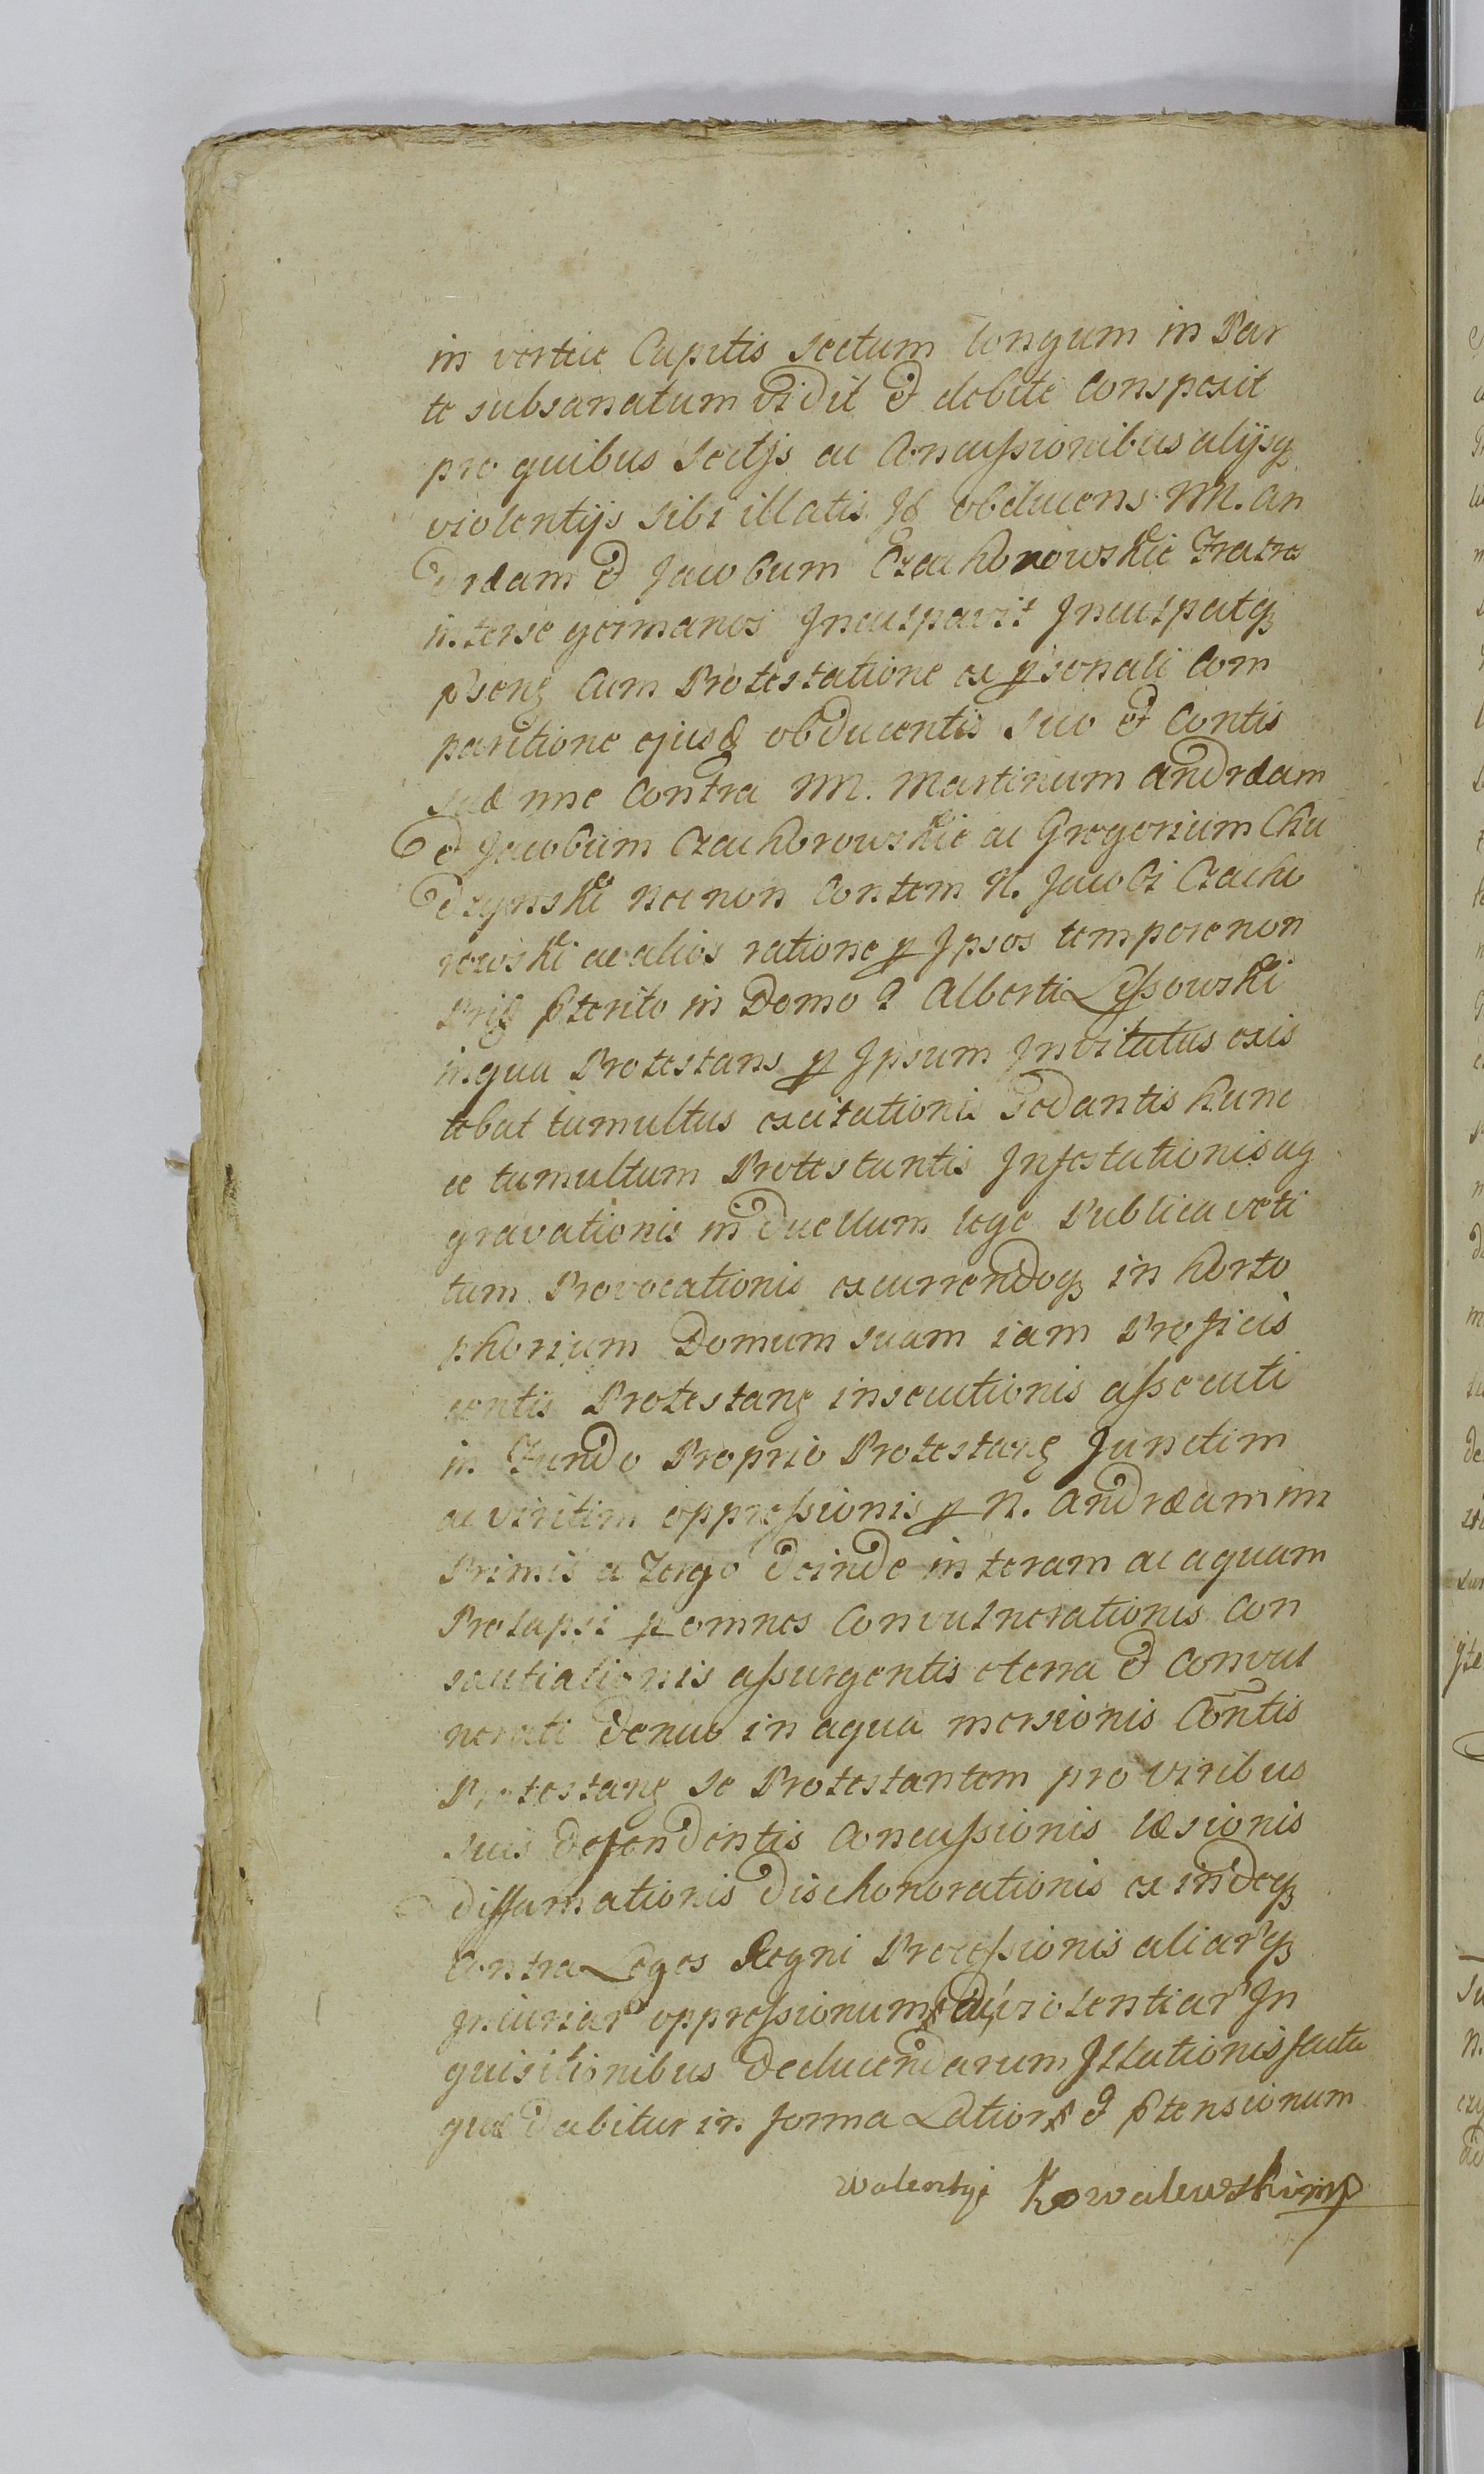 in vertice Capitis sectum longum in Par
te subsanatum vidit et debite Conspexit
pro quibus sectis ac Concussionibus alijsq
violentijs sibi illatis Id obducens M. An
dream et Jacobum Czachorowskie Fratres
interse germanos Inculpavit Inculpatq
pnens Cum Protestatione ex psonali Com
paritione ejusd obducentis suo et Contis
suæ nne Contra M. Martinum Andræam
et Jacobum Czachorowskie ac Gregorium Chu
dzynski nec non Contem N. Jacobi Czacho
rowski ac alios ratione p Ipsos tempore non
Prid pterito in Domo G Alberti Lissowski
in qua Protestans p Ipsum Invitatus exis
tebat tumultus excitationis sedantis hunc
ce tumultum Protestantis Infestationis ag
gravationis in duellum lege Publica veti
tum Provocationis excurrendoq in horto
phorium Domum suam iam Proficis
centis Protestans insecutionis assecuti
in Fundo Proprio Protestans Junctim
ac viritim oppressionis p N. Andræam im
Primis a Tergo deinde in teram ac aquam
Prolapsi p omnes Convulnerationis Con
sautiationis assurgentis e terra et Convul
nerati denuo in aqua mersionis Contis
Protestans se Protestantem pro viribus
suis defendentis Concussionis læsionis
diffamationis dishonorationis exindeq
Contra Leges Regni Processionis aliarq
Iniuriar oppressionum violentiar In
quisitionibus deducendarum Illationis facta
quæ dabitur in forma Lation et ptensionum
Walentyi Kowalewski mp